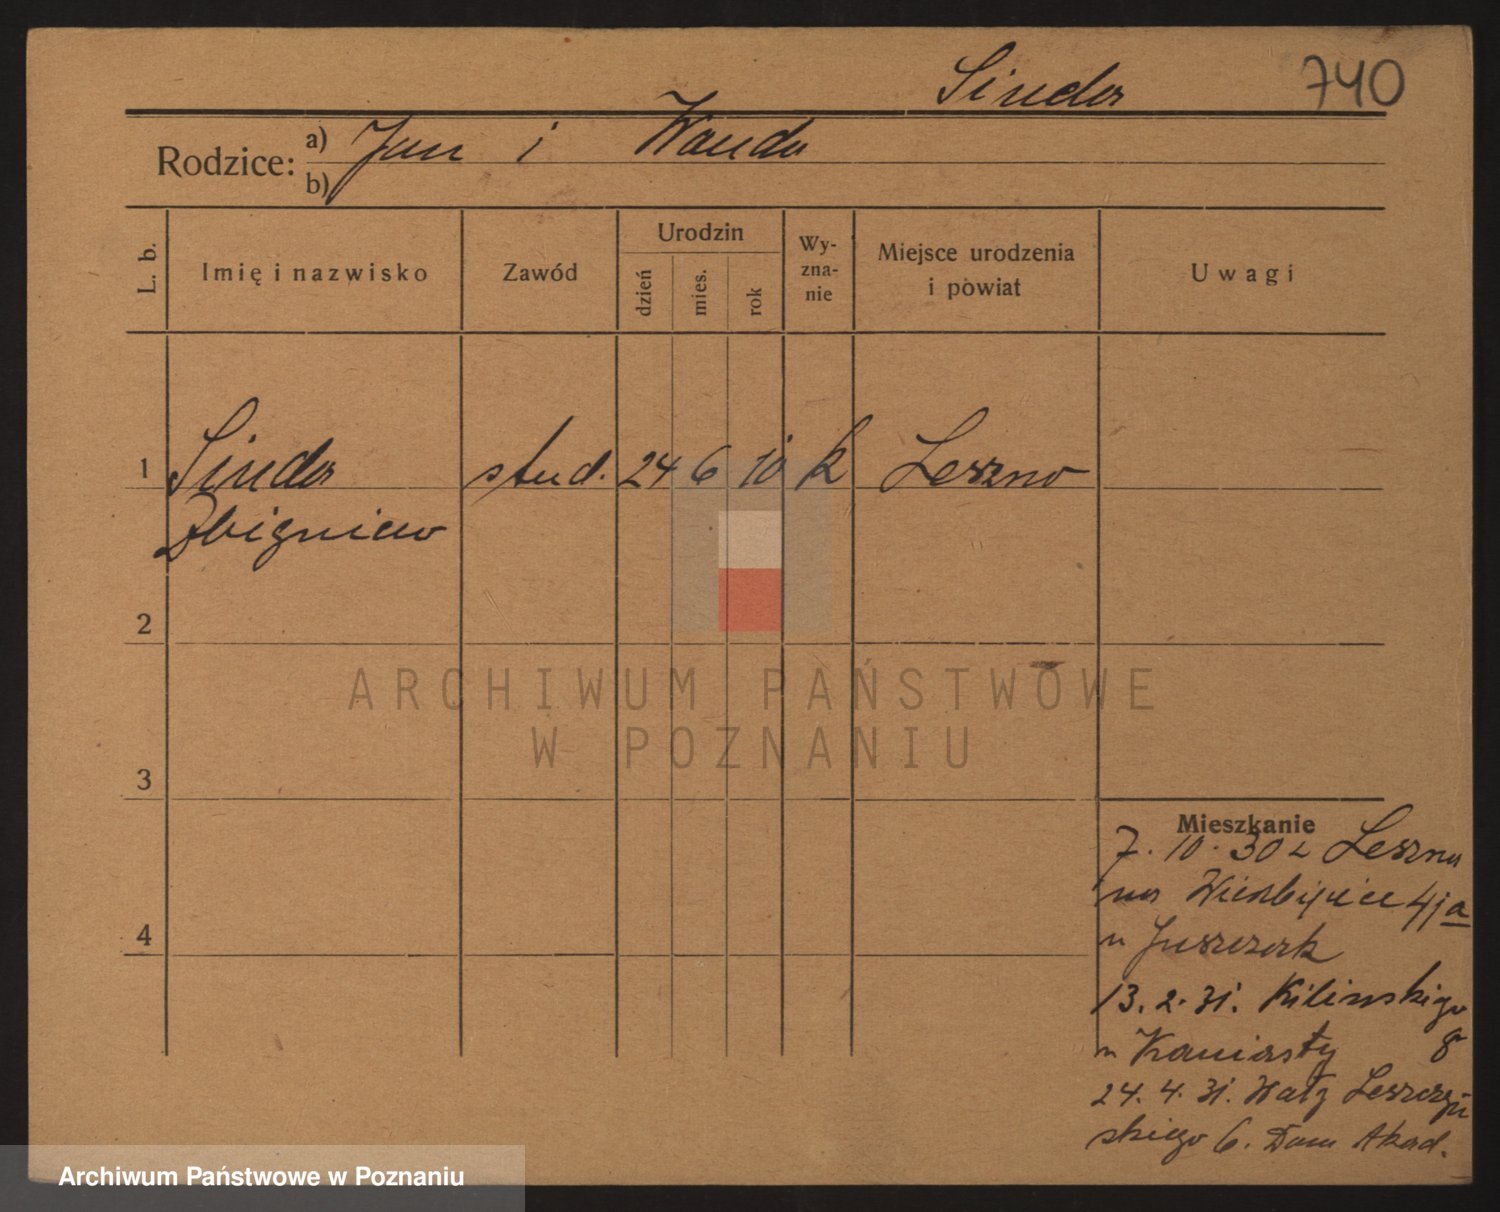 Sinda 740
Rodzice: a) Jan i Wanda
b)
L. b. Imię i nazwisko Zawód Urodzin dzień mies. rok Wy-zna-nie Miejsce urodzenia i powiat Uwagi
1 Sinda stud. 24 6 10 k Leszno
Zbigniew
2
ARCHIWUM PAŃSTWOWE
W POZNANIU
3
Mieszkanie
7. 10. 30 z Leszna
na Wierzbięcice 41a
u
4
13. 2. 31. Kilinskiego
u 8
24. 4. 31. Wały Leszczyń
skiego 6. Dom Akad.
Archiwum Państwowe w Poznaniu